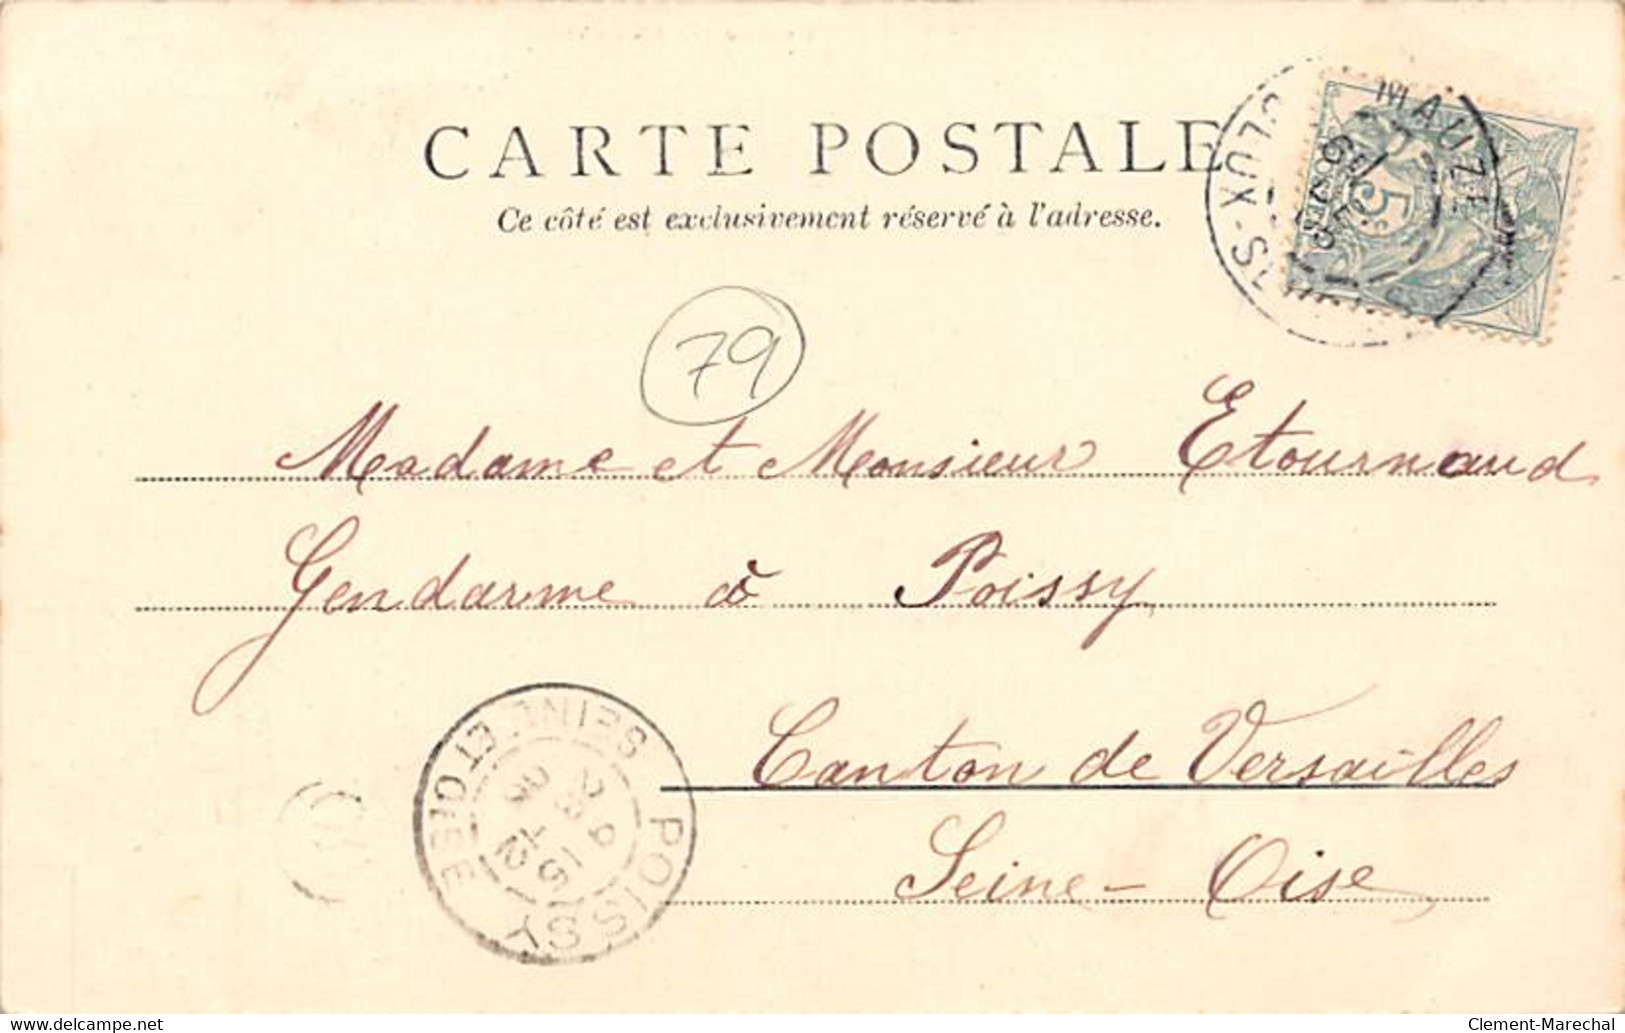 CARTE POSTALE
Ce côté est exclusivement réservé à l'adresse.
MAUZÉ
5
79
Madame et Monsieur Etournaud
Gendarme à Poissy
Canton de Versailles
Seine-Oise
POISSY
SEINE-ET-OISE
Clement-Marechal